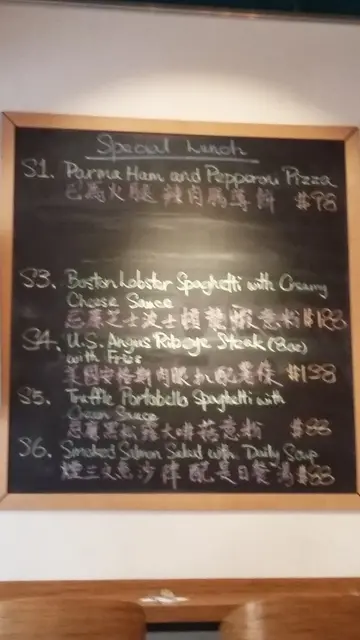 Special Lunch
S1. Parma Ham and Pepperoni Pizza
巴馬火腿辣肉腸薄餅 $98
S3. Boston Lobster Spaghetti with Creamy
Cheese Sauce
忌廉芝士波士頓龍蝦意粉 $188
S4. U.S. Angus Ribeye Steak (8oz)
with Fries
美國安格斯肉眼扒配薯條 $138
S5. Truffle Portabello Spaghetti with
Cream Sauce
忌廉黑松露大啡菇意粉 $88
S6. Smoked Salmon Salad with Daily Soup
煙三文魚沙律配是日餐湯 $88